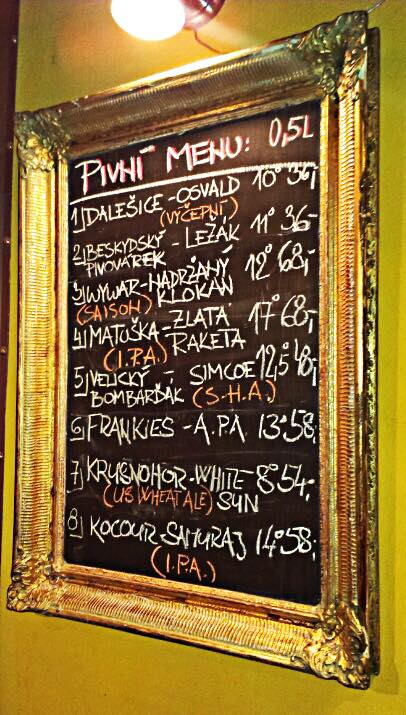 PIVNÍ MENU: 0,5L
1) DALEŠICE - OSVALD 10° 36,-
(VÝČEPNÍ)
2) BESKYDSKÝ PIVOVÁREK - LEŽÁK 11° 36,-
3) WYWAR - NADRŽANÝ KLOKAN 12° 68,-
(SAISON)
4) MATUŠKA - ZLATÁ RAKETA 17° 68,-
(I.P.A.)
5) VELICKÝ BOMBARĎÁK - SIMCOE 12,5° 48,-
(S.H.A.)
6) FRANKIES - A.P.A 13° 58,-
7) KRUŠNOHOR - WHITE SUN 8° 54,-
(US WHEAT ALE)
8) KOCOUR - SAMURAJ 14° 58,-
(I.P.A.)